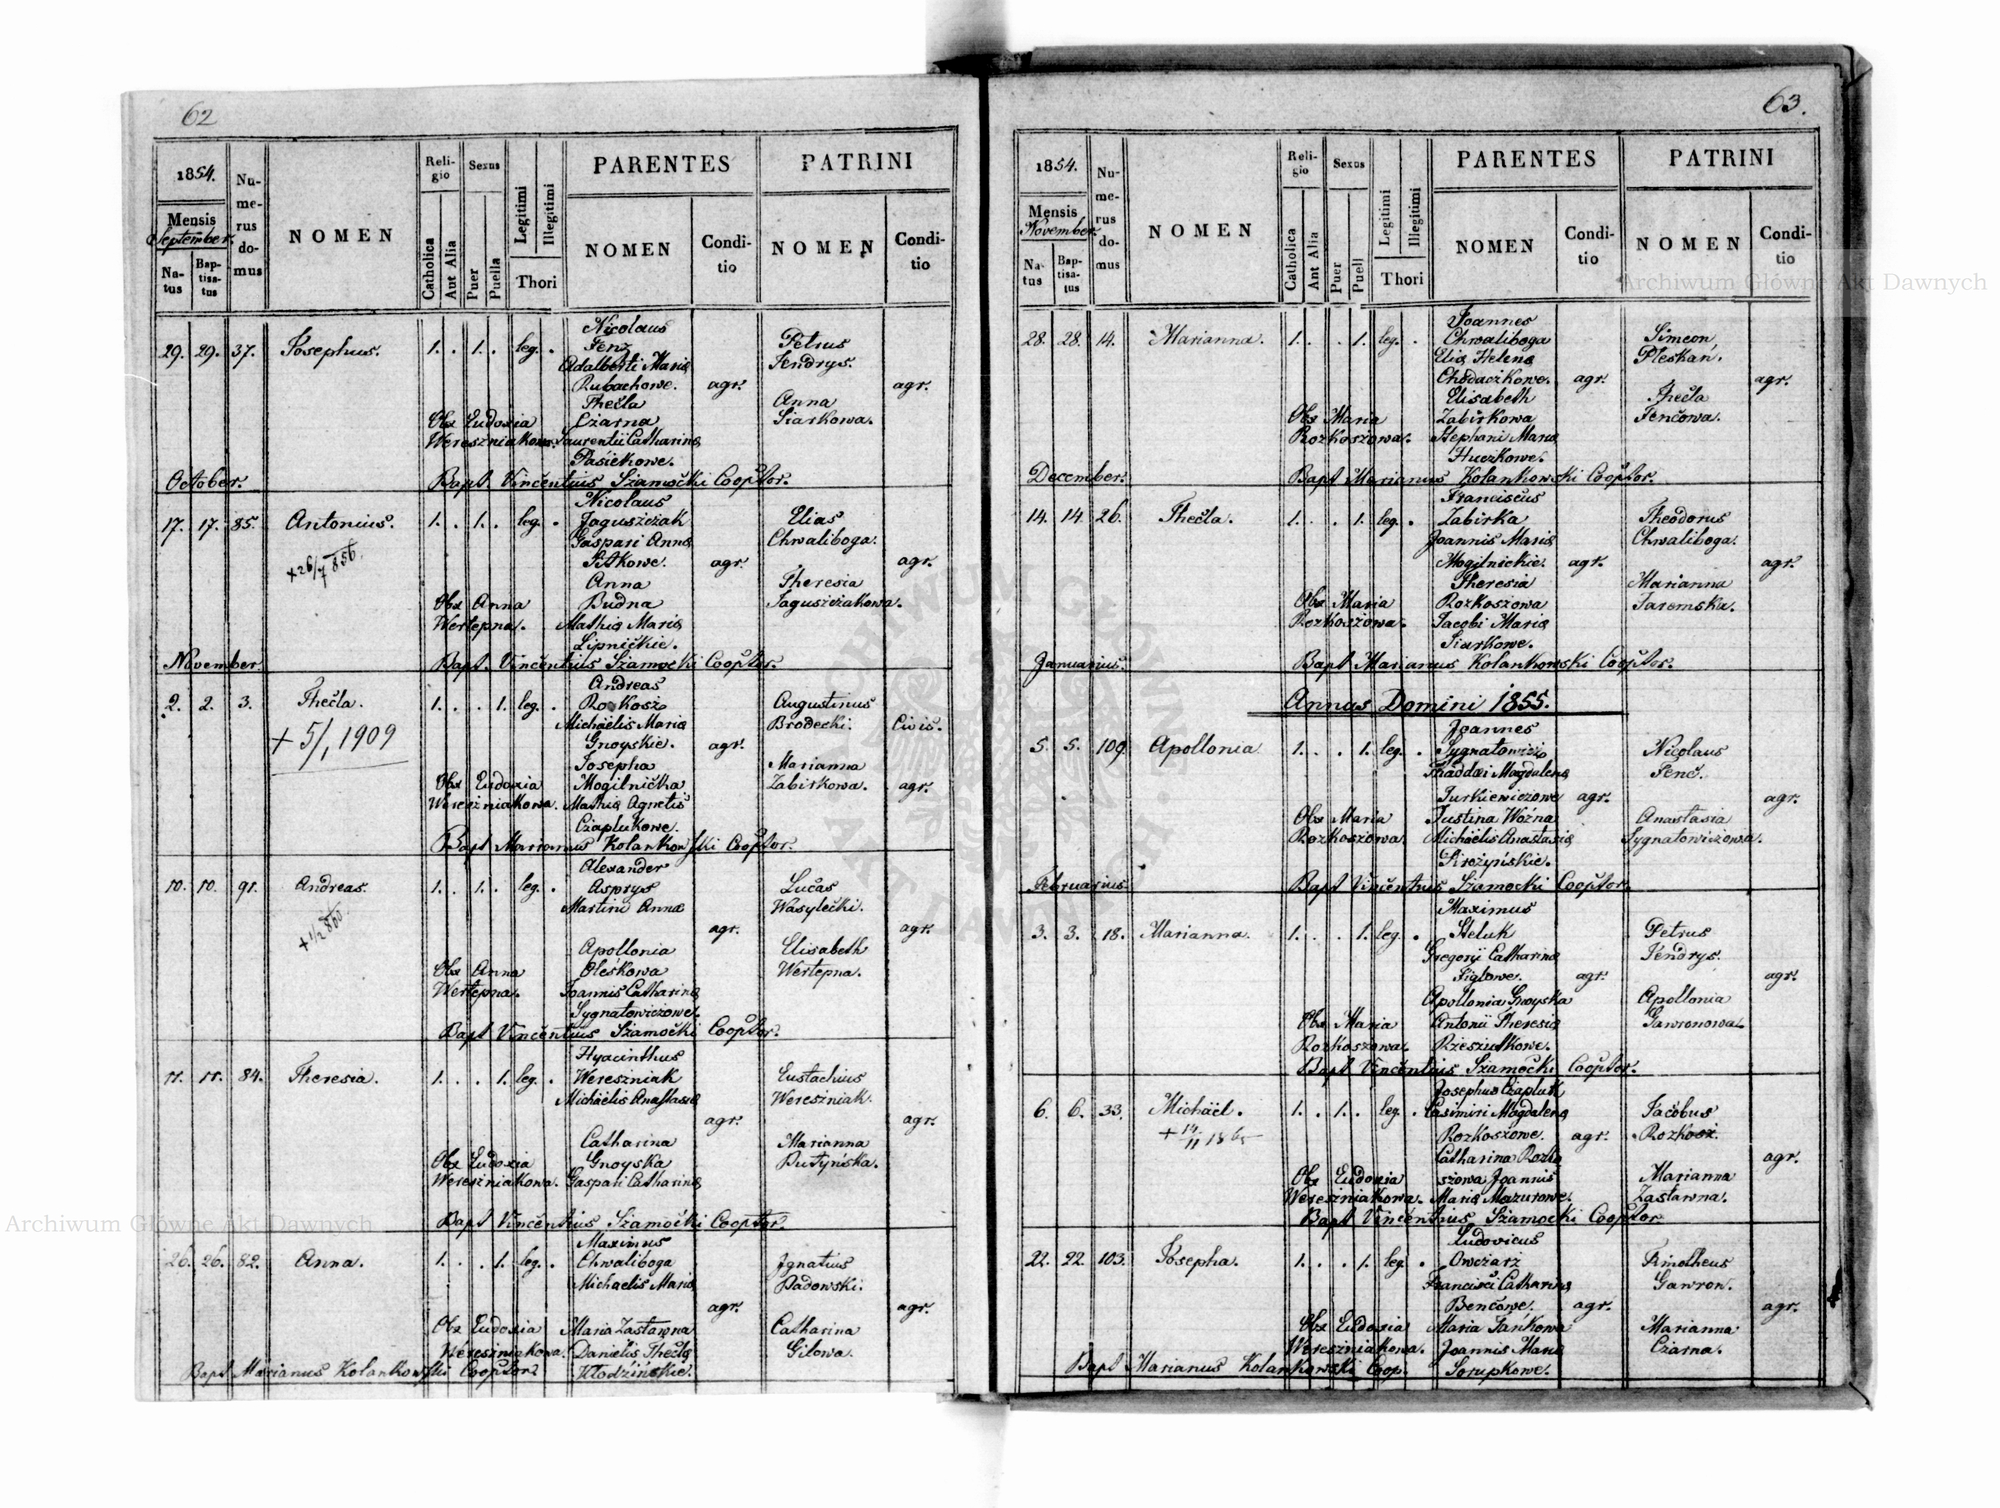 62
1854.
Mensis
September.
Na-
tus
Bap-
tisa-
tus
Nu-
me-
rus
do-
mus
NOMEN
Reli-
gio
Catholica
Aut Alia
Sexus
Puer
Puella
Legitimi
Illegitimi
Thori
PARENTES
NOMEN
Condi-
tio
PATRINI
NOMEN
Condi-
tio
Nicolaus
29. 29. 37. Josephus. 1. . 1. . leg. . Fenz Petrus
Adalberti Maria Fendrys.
Rubachowe. agr. agr.
Thecla Anna
Obs Eudoxia Czarna Siarkowa.
Wereszniakowa. Laurentii Catharina
Pasiekowe.
October. Bapt Vincentius Szamocki Cooptor.
Nicolaus
17. 17. 85. Antonius. 1. . 1. . leg. . Jaguszczak Elias
Gaspari Anna Chwaliboga.
+26/7 856. Pitkowe. agr. agr.
Anna Theresia
Obs Anna Budna Jaguszczakowa.
Wertepna. Mathia Maria
Lipnickie.
November. Bapt. Vincentius Szamocki Cooptor.
Andreas
2. 2. 3. Thecla. 1. . . 1. leg. . Rozkosz Augustinus
Michaelis Maria Brodecki. Civis.
+ 5/1 1909 Gnoyskie. agr.
Josepha Marianna
Obs Eudoxia Mogilnicka Zabirkowa. agr.
Wereszniakowa. Mathia Agnetis
Czaplukowe.
Bapt Marianus Kolankowski Cooptor.
Alexander
10. 10. 91. Andreas. 1. . 1. . leg. . Asprys Lucas
Martini Anna Wasylecki.
+ 1/2 860. agr. agr.
Apollonia Elisabeth
Obs Anna Oleskowa Wertepna.
Wertepna. Joannis Catharina
Sygnatowiczowe.
Bapt Vincentius Szamocki Cooptor.
Hyacinthus
11. 11. 84. Theresia. 1. . . 1. leg. . Wereszniak Eustachius
Michaelis Anastasia Wereszniak.
agr. agr.
Catharina Marianna
Obs Eudoxia Gnoyska Putyńska.
Wereszniakowa. Gaspari Catharina
Bapt Vincentius Szamocki Cooptor
Maximus
26. 26. 82. Anna. 1. . . 1. leg. . Chwaliboga Ignatius
Michaelis Maria Padowski.
agr. agr.
Obs Eudoxia Maria Zastawna Catharina
Wereszniakowa. Danielis Thecla Gilowa.
Bapt Marianus Kolankowski Cooptor. Włodzińskie.
63.
1854.
Mensis
November.
Na-
tus
Bap-
tisa-
tus
Nu-
me-
rus
do-
mus
NOMEN
Reli-
gio
Catholica
Aut Alia
Sexus
Puer
Puell
Legitimi
Illegitimi
Thori
PARENTES
NOMEN
Condi-
tio
PATRINI
NOMEN
Condi-
tio
Joannes
28. 28. 14. Marianna. 1. . . 1. leg. . Chwaliboga Simeon
Elia Helena Pleskan.
Chodaczkowe. agr. agr.
Elisabeth Thecla
Obs Maria Zabirkowa Fencowa.
Rozkoszowa. Stephani Maria
Huczkowe.
December. Bapt Marianus Kolankowski Cooptor.
Franciscus
14. 14. 26. Thecla. 1. . . 1. leg. . Zabirka Theodorus
Joannis Maria Chwaliboga.
Mogilnickie. agr. agr.
Theresia Marianna
Obs Maria Rozkoszowa Jaremska.
Rozkoszowa. Jacobi Maria
Siarkowe.
Januarius. Bapt Marianus Kolankowski Cooptor.
Annus Domini 1855.
Joannes
5. 5. 109. Apollonia. 1. . . 1. leg. . Sygnatowicz Nicolaus
Thaddai Magdalena Fenc.
Turkiewiczowe agr. agr.
Obs Maria Justina Wozna Anastasia
Rozkoszowa. Michaelis Anastasia Sygnatowiczowa.
Strożyńskie.
Februarius. Bapt Vincentius Szamocki Cooptor.
Maximus
3. 3. 18. Marianna. 1. . . 1. leg. . Steluk Petrus
Gregorii Catharina Fendrys.
Figlowe. agr. agr.
Apollonia Gnoyska Apollonia
Obs Maria Antonii Theresia Gawronowa.
Rozkoszowa. Rzeszutkowe.
Bapt Vincentius Szamocki Cooptor.
Josephus Czapluk
6. 6. 33. Michäel. 1. . 1. . leg. . Casimiri Magdalena Jacobus
+ 14/11 1865 Rozkoszowe. agr. Rozkosz.
Catharina Rozko agr.
Obs Eudoxia szowa Joannis Marianna
Wereszniakowa. Maria Mazurowe. Zastawna.
Bapt Vincentius Szamocki Cooptor
Ludovicus
22. 22. 103. Josepha. 1. . . 1. leg. . Owczarz Timotheus
Francisci Catharina Gawron.
Bencowe. agr. agr.
Obs Eudoxia Maria Jankowa Marianna
Wereszniakowa. Joannis Maria Czarna.
Bapt Marianus Kolankowski Coop. Sorupkowe.
Archiwum Główne Akt Dawnych
Archiwum Główne Akt Dawnych
ARCHIWUM GŁÓWNE AKT DAWNYCH